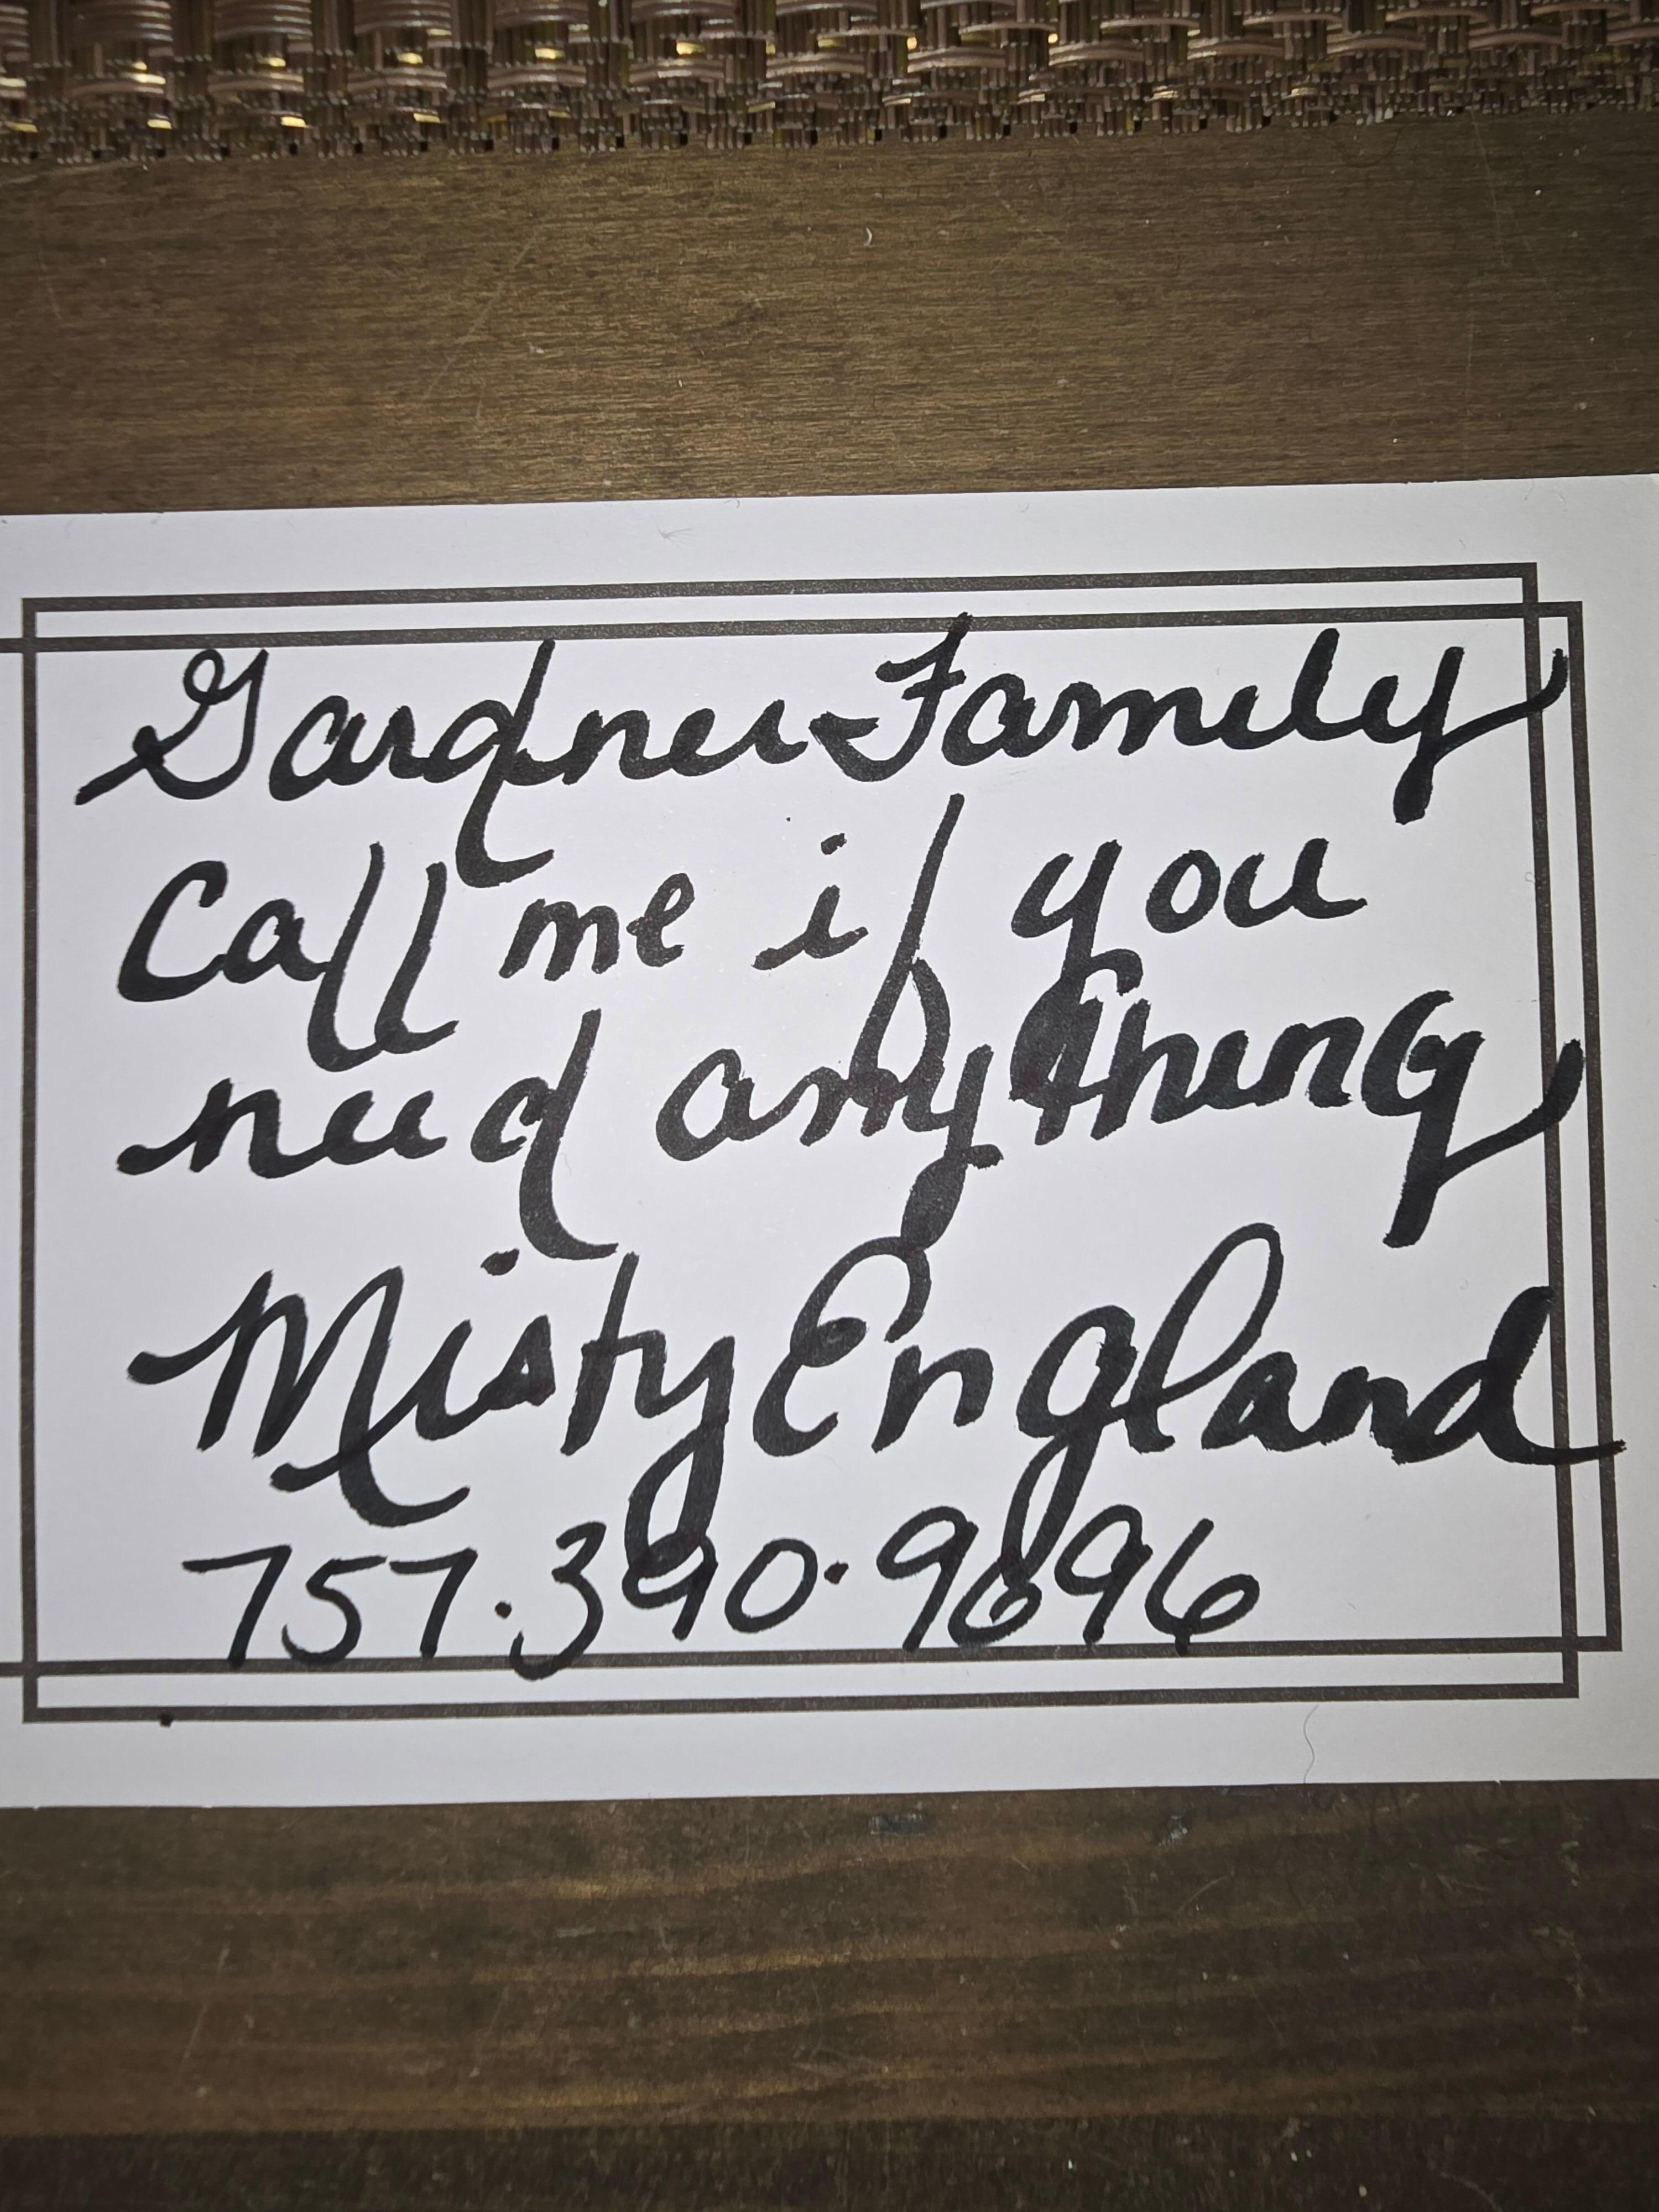 Gardner Family
Call me if you
need anything
Misty England
757.390.9696